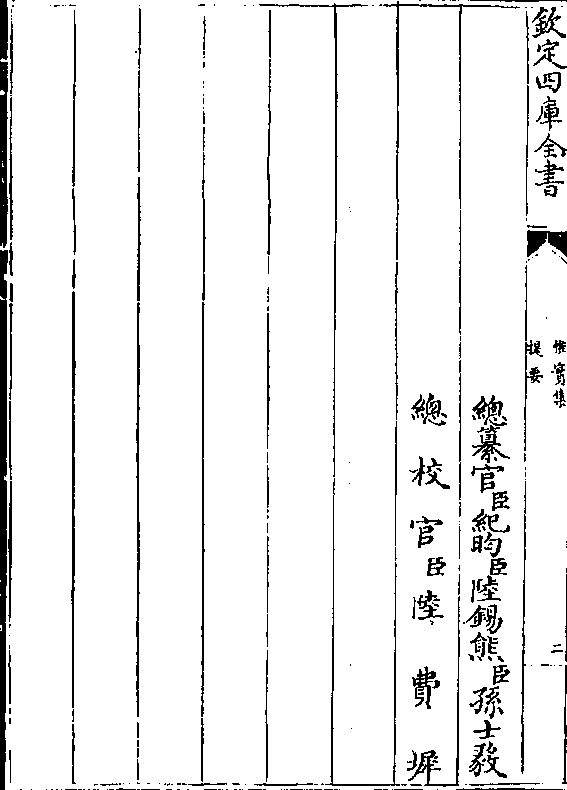 欽定四庫全書
惟實集
提要
二
總纂官臣紀昀臣陸錫熊臣孫士毅
總校官臣陸費墀